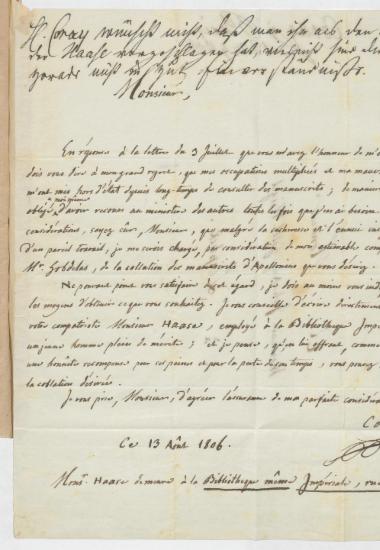 H. Coray wünscht nicht, daß man ihn als den
der Haase vorgeschlagen hat,
gerade nicht in gut
Monsieur,
En réponse à la lettre du 3 Juillet que vous m'avez l'honneur de m'
dois vous dire à mon grand regret, que mes occupations multipliées et ma mauv
m'ont mis hors d'état depuis long-temps de consulter des manuscrits; de maniere
obligé moi-même d'avoir recours au ministère des autres toutes les fois que j'en ai besoin.
considérations, soyez sûr, Monsieur, que malgré la sécheresse et l'ennui
d'un pareil travail, je me serois chargé, par considération de mon estimable com
Mr. Gobdelas, de la collation des manuscrits d'Apollonius que vous désirez.
Ne pouvant point vous satisfaire à cet égard, je dois au moins vous ind
les moyens d'obtenir ce que vous souhaitez. Je vous conseille d'écrire directement
votre compatriote Monsieur Haase, employé à la Bibliotheque Impé
un jeune homme plein de mérite; et je pense, qu'en lui offrant, comme
une honnête recompense pour ses peines et par la perte de son temps, vous pourrez
la collation désirée.
Je vous prie, Monsieur, d'agréer l'assurance de ma parfaite considérat
Co
Ce 13 Août 1806.
Monsr. Haase demeure à la Bibliotheque même Impériale, rue